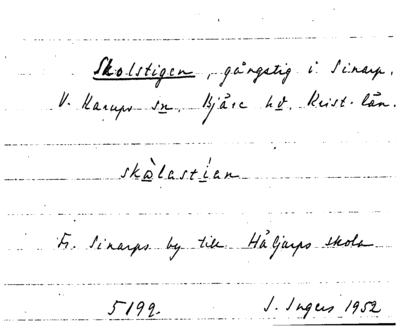 Skolstigen, gångstig i Sinarp,
V. Karups sn. Bjäre hd. Krist. län.
skòlastían
Fr. Sinarps by till Håljarps skola
5199. I. Ingers 1952